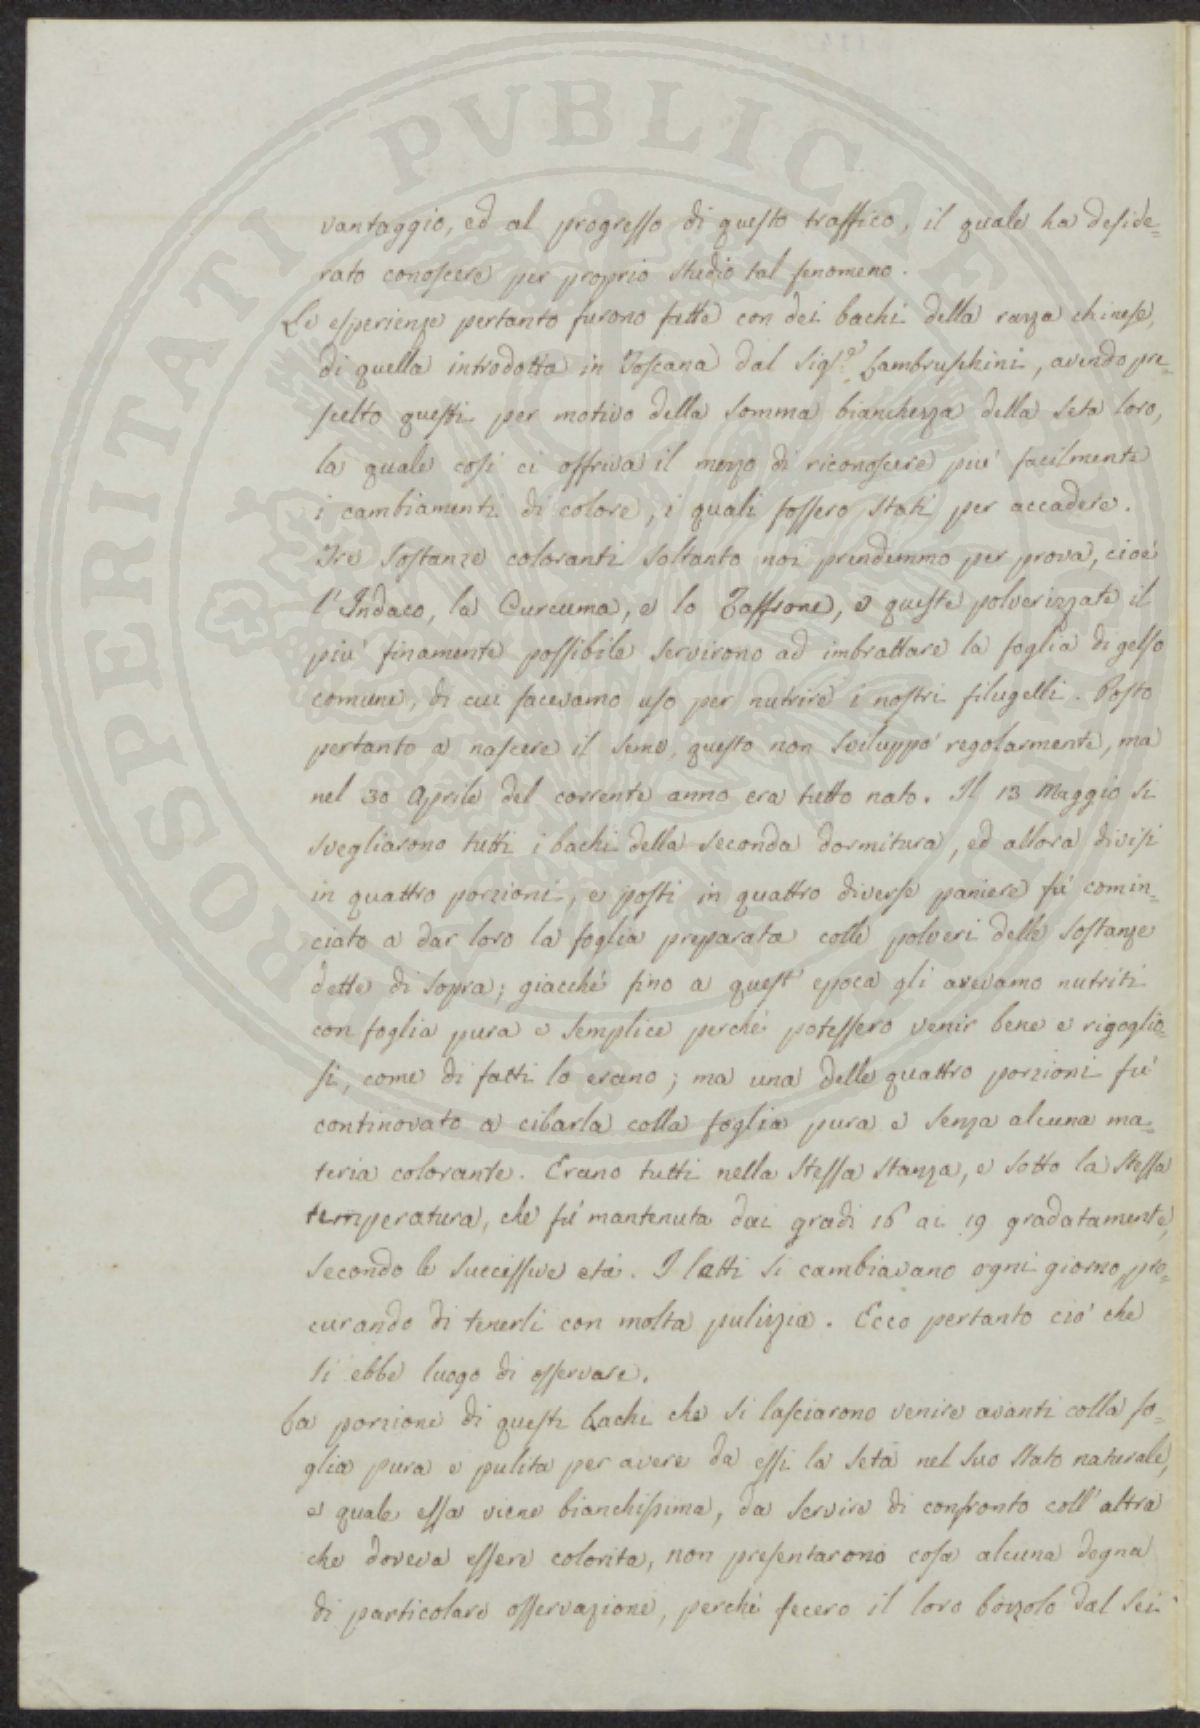 PROSPERITATI PVBLICAE AVGENDAE
vantaggio, ed al progresso di questo traffico, il quale ha deside=
rato conoscere per proprio studio tal fenomeno.
Le esperienze pertanto furono fatte con dei bachi della razza chinese,
di quella introdotta in Toscana dal Sigr. Lambruschini, avendo pre=
scelto questi per motivo della somma bianchezza della seta loro,
la quale così ci offriva il mezzo di riconoscere piu' facilmente
i cambiamenti di colore, i quali fossero stati per accadere.
Tre sostanze coloranti soltanto noi prendemmo per prova, cioè
l'Indaco, la Curcuma, e lo Zaffrone, e queste polverizzate il
piu' finamente possibile servirono ad imbrattare la foglia di gelso
comune, di cui facevamo uso per nutrire i nostri filugelli. Posto
pertanto a nascere il seme, questo non sviluppo' regolarmente, ma
nel 30 Aprile del corrente anno era tutto nato. Il 13 Maggio si
svegliarono tutti i bachi della seconda dormitura, ed allora divisi
in quattro porzioni, e posti in quattro diverse paniere fu' comin=
ciato a dar loro la foglia preparata colle polveri delle sostanze
dette di sopra; giacchè fino a quest' epoca gli avevamo nutriti
con foglia pura e semplice perchè potessero venir bene e rigoglio=
si, come di fatti lo erano; ma una delle quattro porzioni fu'
continovato a cibarla colla foglia pura e senza alcuna ma=
teria colorante. Erano tutti nella stessa stanza, e sotto la stessa
temperatura, che fu' mantenuta dai gradi 16 ai 19 gradatamente,
secondo le successive età. I letti si cambiavano ogni giorno pro=
curando di tenerli con molta pulizzia. Ecco pertanto cio' che
si ebbe luogo di osservare.
La porzione di questi bachi che si lasciarono venire avanti colla fo=
glia pura e pulita per avere da essi la seta nel suo stato naturale,
e quale essa viene bianchissima, da servire di confronto coll' altra
che doveva essere colorita, non presentarono cosa alcuna degna
di particolare osservazione, perchè fecero il loro bozzolo dal sei